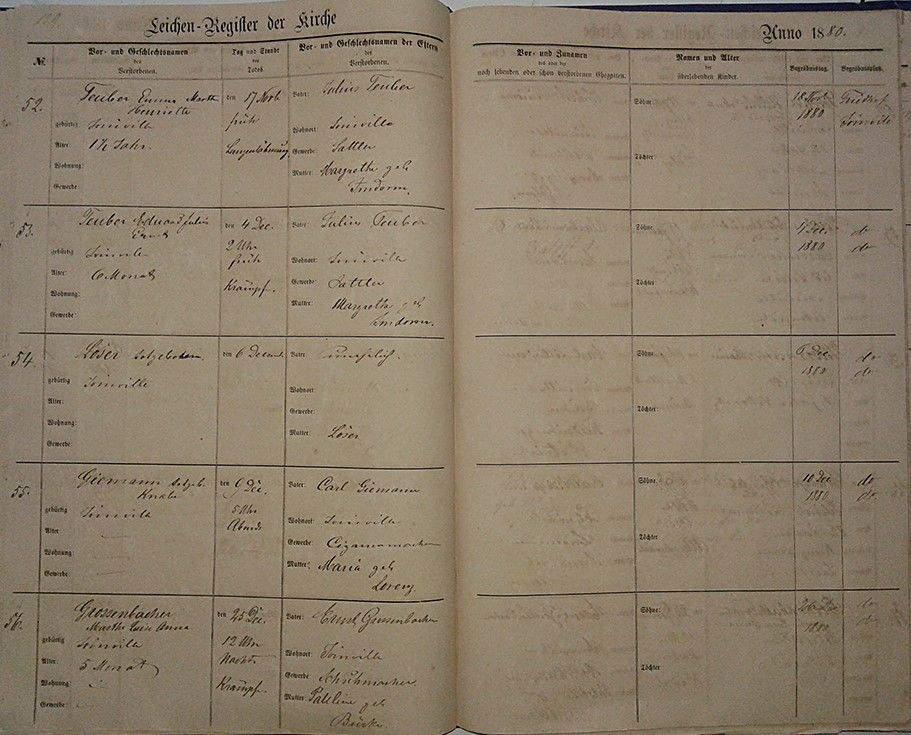 Leichen-Register der Kirche
Anno 1880.
№
Vor- und Geschlechtsnamen
des
Verstorbenen.
Tag und Stunde
des
Todes
Vor- und Geschlechtsnamen der Eltern
des
Verstorbenen.
Vor- und Zunamen
noch lebenden oder schon verstorbenen Ehegatten.
Namen und Alter
der
überlebenden Kinder.
Begräbnistag.
Begräbnisplatz.
52.
Teuber Emma Martha
Henriette
gebürtig Joinville
Alter 1½ Jahr.
Wohnung:
Gewerbe
den 17 Novb
früh
Vater: Julius Teuber
Wohnort: Joinville
Gewerbe: Sattler
Mutter: Margretha geb
Söhne:
Töchter:
18 Novb
1880
Friedhof
Joinville
53.
Teuber Eduard Julius
Ernst
gebürtig Joinville
Alter: 6 Monat
Wohnung:
Gewerbe:
den 4 Dec.
2 Uhr
früh
Krämpf.
Vater: Julius Teuber
Wohnort: Joinville
Gewerbe: Sattler
Mutter: Margretha geb
Söhne:
Töchter:
4 Dec.
1880
do
do
54.
Löser todgeboren.
gebürtig Joinville
Alter:
Wohnung:
Gewerbe:
den 6 Decemb.
Vater unehelich.
Wohnort:
Gewerbe:
Mutter: Löser
Söhne:
Töchter:
6 Dec
1880
do
do
55.
Giemann todgeb.
Knabe
gebürtig Joinville
Alter:
Wohnung:
Gewerbe:
den 9 Dec.
5 Uhr
Abends
Vater: Carl Giemann
Wohnort: Joinville
Gewerbe: Cigarrenmacher
Mutter: Maria geb
Lorenz.
Söhne.
Töchter
10 Dec
1880
do
do
56.
Grossenbacher
Martha Anna
gebürtig Joinville
Alter: 5 Monat
Wohnung:
Gewerbe:
den 25 Dec.
12 Uhr
Nachts
Krämpf.
Vater: Ernst Grossenbacher
Wohnort: Joinville
Gewerbe Schuhmacher.
Mutter geb
Söhne:
Töchter
26 Dec
1880
do
do